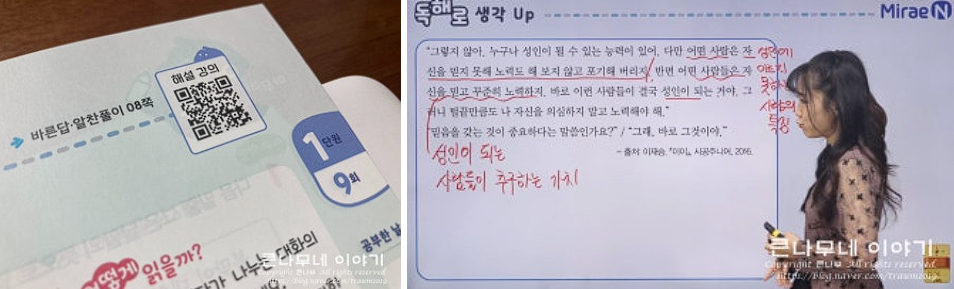 해설 강의
바른답·알찬풀이 08쪽
1단원
9회
떻게 읽을까?
공부한 날
나누는 대화의
큰나무네 이야기
Copyright 큰나무. All rights reserved.
http://blog.naver.com/traum2019
독해로 생각 Up
Mirae N
“그렇지 않아. 누구나 성인이 될 수 있는 능력이 있어. 다만 어떤 사람은 자
신을 믿지 못해 노력도 해 보지 않고 포기해 버리지. 반면 어떤 사람들은 자
신을 믿고 꾸준히 노력하지. 바로 이런 사람들이 결국 성인이 되는 거야. 그
러니 털끝만큼도 나 자신을 의심하지 말고 노력해야 해.”
“믿음을 갖는 것이 중요하다는 말씀인가요?” / “그래, 바로 그것이야.”
- 출처: 이재승, 시공주니어, 2016.
성인에
이르지
못하는
사람의
특징
성인이 되는
사람들이 추구하는 가치
큰나무네 이야기
Copyright 큰나무. All rights reserved.
http://blog.naver.com/traum2019